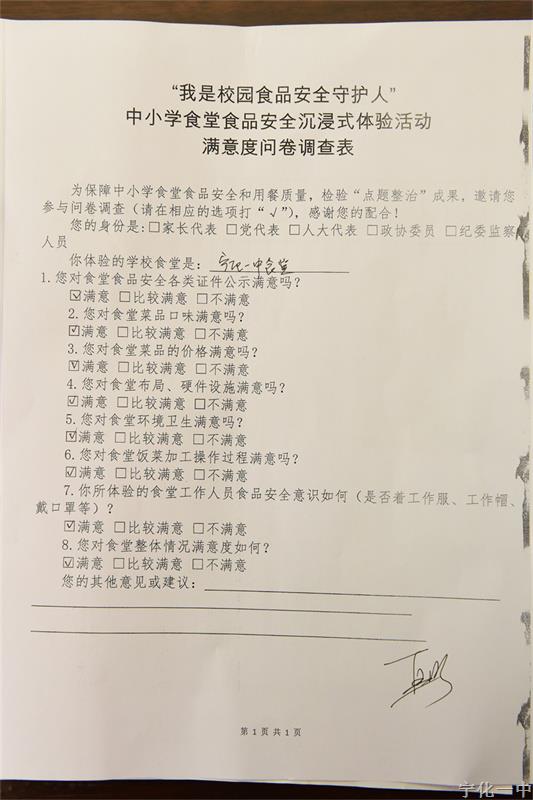 “我是校园食品安全守护人”
中小学食堂食品安全沉浸式体验活动
满意度问卷调查表
为保障中小学食堂食品安全和用餐质量，检验“点题整治”成果，邀请您
参与问卷调查（请在相应的选项打“√”），感谢您的配合！
您的身份是：□家长代表 □党代表 □人大代表 □政协委员 □纪委监察
人员
你体验的学校食堂是：宁化一中食堂
1.您对食堂食品安全各类证件公示满意吗？
☑满意 □比较满意 □不满意
2.您对食堂菜品口味满意吗？
☑满意 □比较满意 □不满意
3.您对食堂菜品的价格满意吗？
☑满意 □比较满意 □不满意
4.您对食堂布局、硬件设施满意吗？
☑满意 □比较满意 □不满意
5.您对食堂环境卫生满意吗？
☑满意 □比较满意 □不满意
6.您对食堂饭菜加工操作过程满意吗？
☑满意 □比较满意 □不满意
7.你所体验的食堂工作人员食品安全意识如何（是否着工作服、工作帽、
戴口罩等）？
☑满意 □比较满意 □不满意
8.您对食堂整体情况满意度如何？
☑满意 □比较满意 □不满意
您的其他意见或建议：
第 1 页 共 1 页
宁化一中